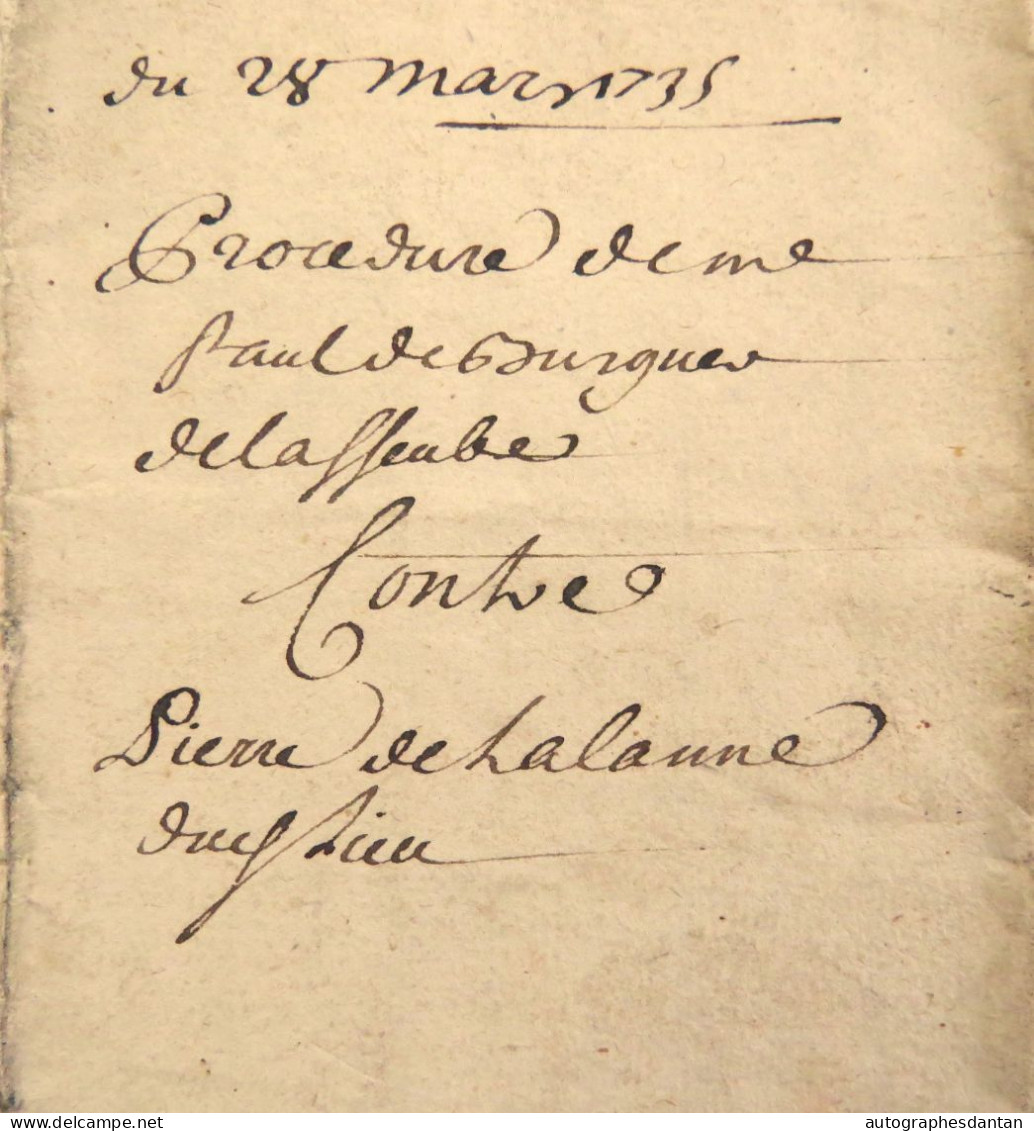 du 28 mars 1735
Procedure de me
Paul de Burgues
de lasseube
Contre
Pierre de Lalanne
du lieu
delcampe.net
autographesdantan